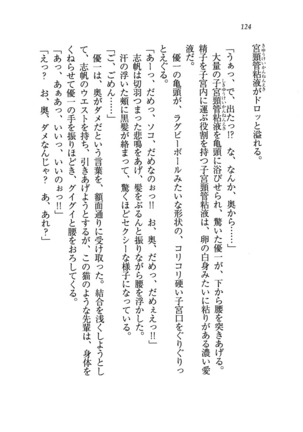 124
宮頸管粘液がドロッと溢れる。
「うぁっ、で、出たっ!? な、なんか、奥から……」
大量の子宮頸管粘液を亀頭に浴びせられ、驚いた優一が、下から腰を突きあげる。
精子を子宮内に運ぶ役割を持つ子宮頸管粘液は、卵の白身みたいに粘りがある濃い愛
液だ。
優一の亀頭が、ラグビーボールみたいな形状の、コリコリ硬い子宮口をぐりぐりっ
とえぐる。
「あーっ、だめっ、ソコ、だめなのぉっ!! お、奥、だめっ、だめぇえっ!!」
志帆は切羽つまった悲鳴をあげ、髪をぶるんと振りながら腰を浮かした。
汗の浮いた頬に黒髪が絡まって、驚くほどセクシーな様子になっている。
「ご、ごめん……」
優一は、奥がダメだという言葉を、額面通りに受け取った。結合を浅くしようとし
て、志帆のウエストを持ち、引きあげようとするが、この猫のような先輩は、身体を
くねらせて優一の手を振りほどき、グイグイと腰をおろしてくる。
「あっ、あぁあっ、いいっ、いいのぉっ!!」
「えっ? お、奥、ダメなんじゃ? あ、あれ?」